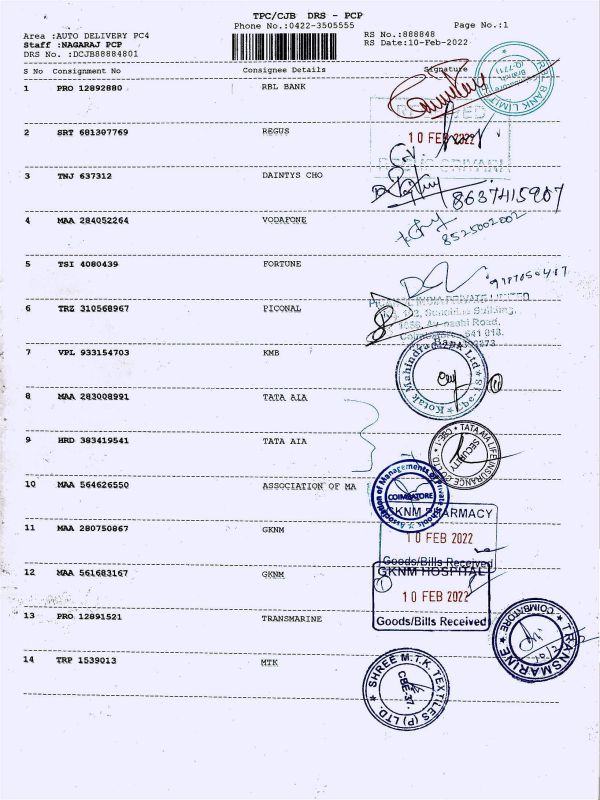 TPC/CJB DRS - PCP
Phone No.:0422-3505555
Page No.:1
Area :AUTO DELIVERY PC4
RS No.:888848
Staff :NAGARAJ PCP
RS Date:10-Feb-2022
DRS No. :DCJB88884801
S No Consignment No Consignee Details Signature
1 PRO 12892880 RBL BANK
RBL BANK LIMITED
2 SRT 681307769 REGUS
10 FEB 2022
3 TNJ 637312 DAINTYS CHO
8637415907
4 MAA 284052264 VODAFONE
8525002002
5 TSI 4080439 FORTUNE
6 TRZ 310568967 PICONAL
INDIA PRIVATE LIMITED
Road,
7 VPL 933154703 KMB
Kotak Mahindra Bank Ltd
8 MAA 283008991 TATA AIA
9 HRD 383419541 TATA AIA
TATA AIA LIFE INSURANCE CO LTD.
SECURITY
10 MAA 564626550 ASSOCIATION OF MA
Association of Managements of Private
COIMBATORE
11 MAA 280750867 GKNM
GKNM PHARMACY
10 FEB 2022
Goods/Bills Received
12 MAA 561683167 GKNM
GKNM HOSPITAL
10 FEB 2022
Goods/Bills Received
13 PRO 12891521 TRANSMARINE
TRANSMARINE
COIMBATORE
14 TRP 1539013 MTK
SHREE M.T.K. TEXTILES (P) LTD.
CBE-37.